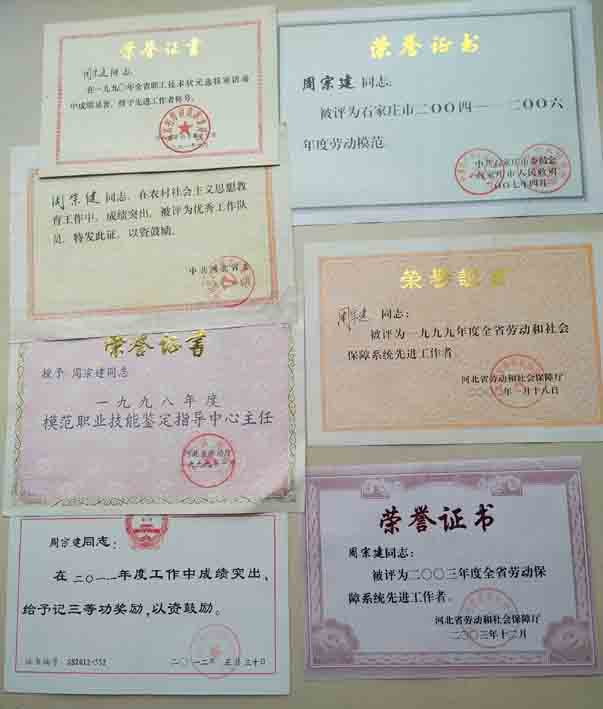 荣誉证书
周宗建同志:
在一九九〇年全省职工技术状元选拔赛活动
中成绩显著，授予先进工作者称号。
周宗建同志，在农村社会主义思想教
育工作中，成绩突出，被评为优秀工作队
员，特发此证，以资鼓励。
中共河北省委
荣誉证书
授予 周宗建同志
一九九八年度
模范职业技能鉴定指导中心主任
河北省劳动厅
一九九九年
周宗建同志：
在二〇一一年度工作中成绩突出，
给予记三等功奖励，以资鼓励。
证书编号
二〇一二年 三月三十日
荣誉证书
周宗建同志：
被评为石家庄市二〇〇四—二〇〇六
年度劳动模范
中共石家庄市委员会
石家庄市人民政府
二〇〇七年四月
荣誉证书
周宗建 同志：
被评为一九九九年度全省劳动和社会
保障系统先进工作者
河北省劳动和社会保障厅
年一月十八日
荣誉证书
周宗建同志：
被评为二〇〇三年度全省劳动保
障系统先进工作者。
河北省劳动和社会保障厅
二〇〇三年十二月